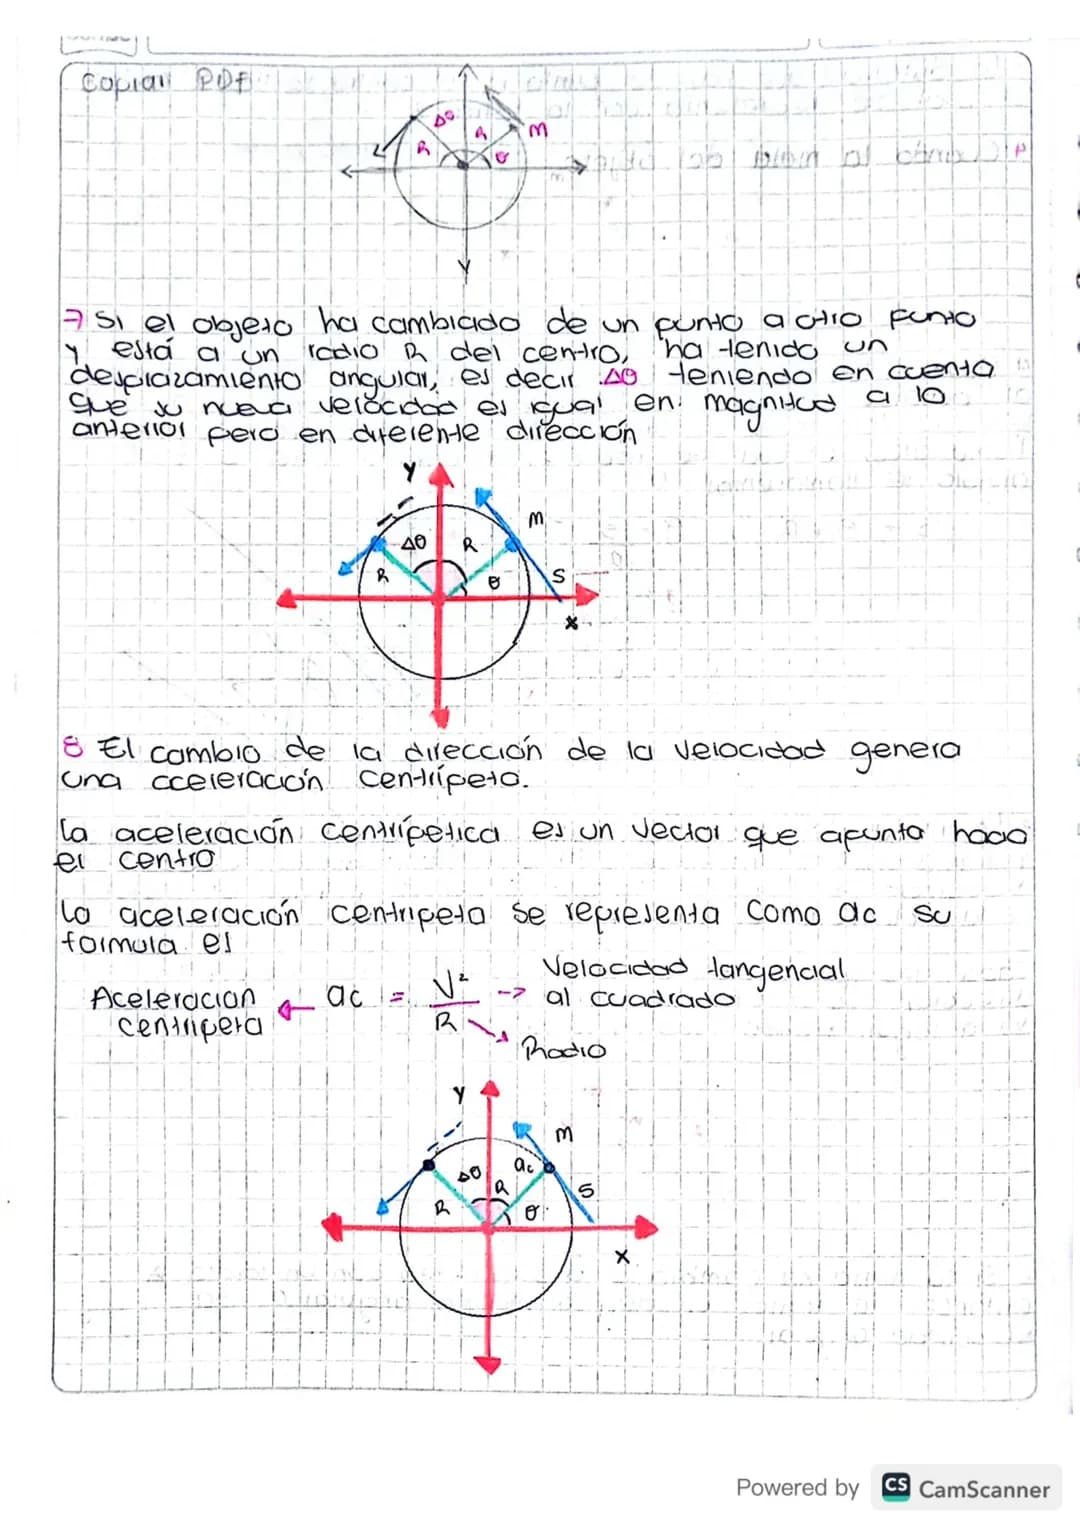 Copiar PDF
Δθ
R
m
R
θ
7 Si el objeto ha cambiado de un punto a otro punto
y está a un radio R del centro, ha tenido un
desplazamiento angular, es decir Δθ teniendo en cuenta
que su nueva velocidad es igual en magnitud a lo
anterior pero en diferente dirección
Y
m
Δθ R
R θ S
X
8 El cambio de la dirección de la velocidad genera
una aceleración centrípeto.
La aceleración centrípetica es un vector que apunta hacia
el centro
La aceleración centripeta se representa como ac su
formula es
Velocidad tangencial
al cuadrado
Aceleracion
centripeta
ac = V²
R
Radio
Y
m
Δθ ac
R S
R θ
X
Powered by CS CamScanner